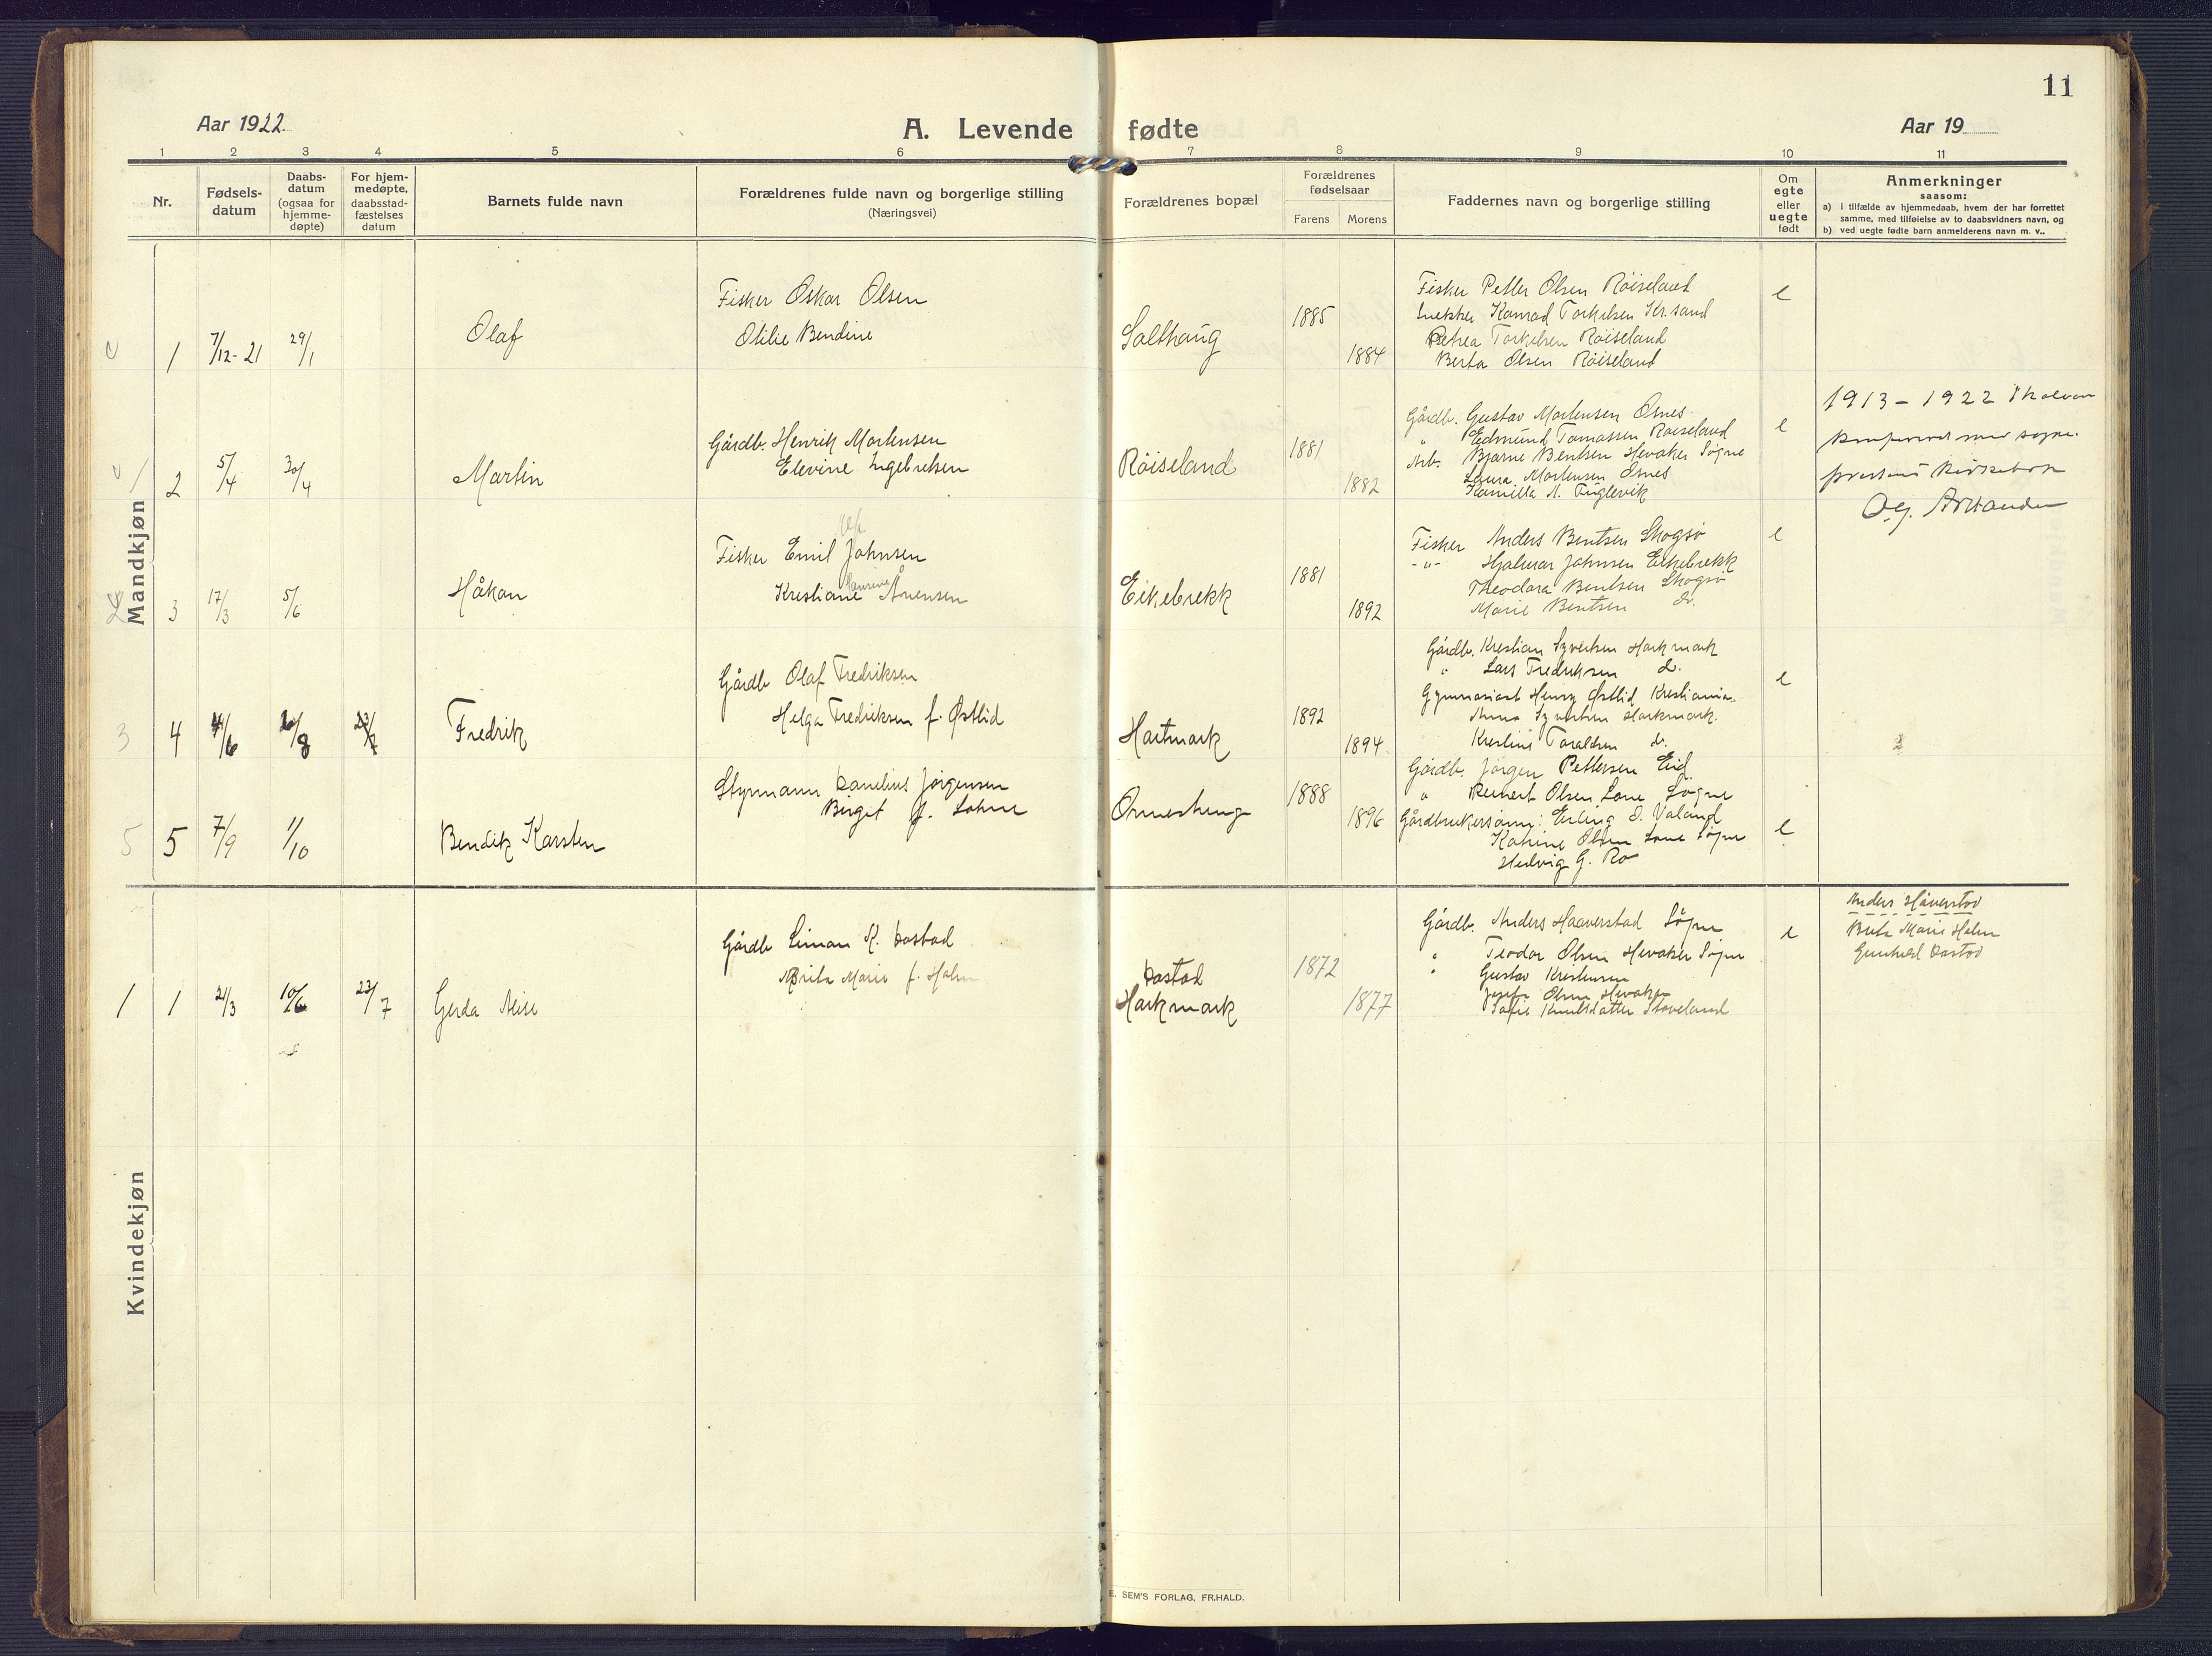 11
Aar 1922.
A. Levende fødte
Aar 19
1 2 3 4 5 6 7 8 9 10 11
Nr.
Fødselsdatum
Daabsdatum (ogsaa for hjemmedøpte)
For hjemmedøpte, daabsstadfæstelses datum
Barnets fulde navn
Forældrenes fulde navn og borgerlige stilling
(Næringsvei)
Forældrenes bopæl
Forældrenes fødselsaar
Farens Morens
Faddernes navn og borgerlige stilling
Om egte eller uegte født
Anmerkninger
saasom:
a) i tilfælde av hjemmedaab, hvem der har forrettet
samme, med tilføielse av to daabsvidners navn, og
b) ved uegte fødte barn anmelderens navn m. v..
Mandkjøn
1 7/12-21 29/1 Olaf
Fisker Oskar Olsen
Otilie Bendine
1885
1884
Fisker Petter Olsen Röiseland
Konrad Torkelsen Kr.sand
Petrea Torkelsen Röiseland
Berta Olsen Röiseland
e
2 5/4 30/4 Martin
Gårdb. Henrik Mortensen
Elevine Ingebretsen
Röiseland
1881
1882
Gårdb. Gustav Mortensen Osnes
" Edmund Tomassen Røiseland
Arb. Bjarne Bentsen Hevaker Søgne
Laura Mortensen Osnes
Kamilla A. Fuglevik
e
1913 - 1922
3 17/3 5/6 Håkan
Fisker Emil Johnsen
Kristiane Laurine Ånensen
Eikebrekk
1881
1892
Fisker Anders Bentsen Skogsø
-"- Hjalmar Johnsen Eikebrekk
Theodora Bentsen Skogsø
Marie Bentsen do.
e
3 4 Fredrik
Gårdb Olaf Fredriksen
Helga Fredriksen f. Østlid
Hartmark
1892
1894
Gårdb. Kristian Syvertsen Harkmark
" Lars Fredriksen d.
Gymnasiast Henry Østlid Kristiania.
Anna Syvertsen Harkmark.
Kristine Toraldsen d.
e
5 5 7/9 1/10 Bendik Karsten
Styrmann Danelius Jørgensen
Birgit J. Lohne
1888
1896
Gårdb. Jørgen Pettersen Eid.
" Reinert Olsen Lone Søgne
Gårdbrukersønn: Erling O. Valand
Katrine Olsen Lone Søgne
Hedvig G. Ro
e
Kvindekjøn
1 1 21/3 10/6 23/7 Gerda Alise
Gårdb Simon K. Dastad
Marie f. Holm
Dastad
Harkmark
1872
1877
Gårdb. Anders Haaverstad Søgne
" Teodor Olsen Hevaker Søgne
" Gustav Kristensen
Olsen Hevaker
Sofie Knutsdatter Stoveland
e
Anders Håverstad
Marie Holm
Gunhild Dastad
E. SEM'S FORLAG, FR.HALD.